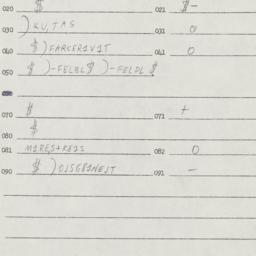 020 $ 021 $-
030 )KU,TAS 031 0
040 $)FARKER1V1T 041 0
050 $ )-FELBL$ )-FELDL $
060
070 $ 071 +
080 $
081 M1RES+RE1S 082 0
090 $ )OJSGB1NEJT 091 -